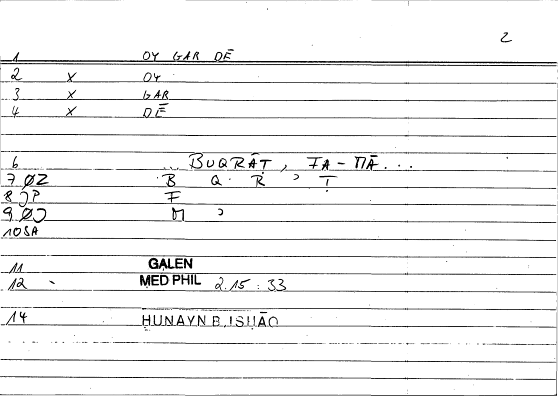 2
1 OY GAR DĒ
2 X OY
3 X GAR
4 X DĒ
6 ... BUQRĀṬ, FA-MĀ...
7 ØZ B Q R ʾ Ṭ
8 JP F
9 ØJ M ʾ
10 SA
11 GALEN
12 MED PHIL 2.15 : 33
14 ḤUNAYN B. ISḤĀQ